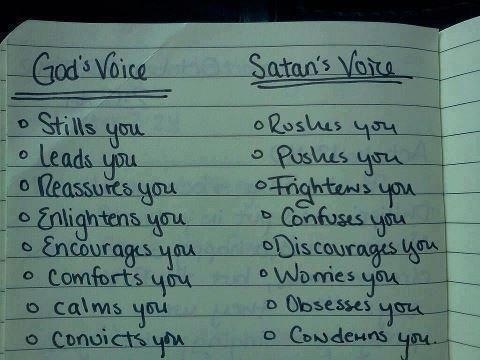 God's Voice
Stills you
Leads you
Reassures you
Enlightens you
Encourages you
Comforts you
Calms you
Convicts you
Satan's Voice
Rushes you
Pushes you
Frightens you
Confuses you
Discourages you
Worries you
Obsesses you
Condemns you.